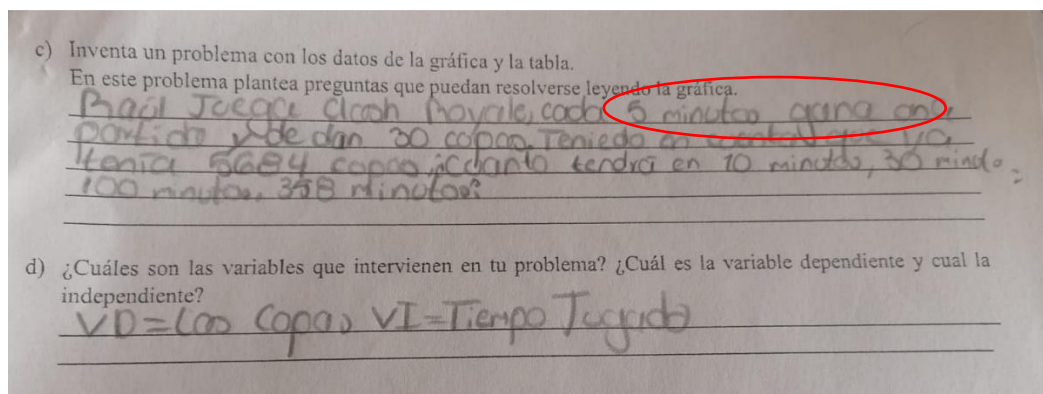 c) Inventa un problema con los datos de la gráfica y la tabla.
En este problema plantea preguntas que puedan resolverse leyendo la gráfica.
Raúl Juega Clash Royale, cada 5 minutos gana una
partida y le dan 30 copas. Teniedo en cuenta que ya
tenia 5684 copas ¿Cuanto tendrá en 10 minutos, 30 minutos
100 minutos, 358 Minutos?
d) ¿Cuáles son las variables que intervienen en tu problema? ¿Cuál es la variable dependiente y cual la
independiente?
VD=Las Copas VI=Tiempo Jugado